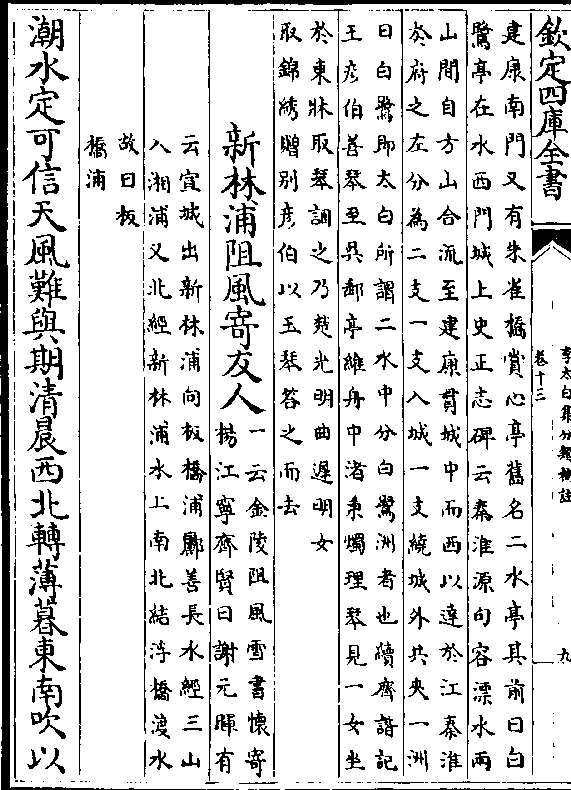 欽定四庫全書
李太白集分類補註
卷十三
九
建康南門又有朱雀橋賞心亭舊名二水亭其前曰白
鷺亭在水西門城上史正志碑云秦淮源句容溧水兩
山間自方山合流至建康貫城中而西以達於江秦淮
於府之左分為二支一支入城一支繞城外共夾一洲
曰白鷺即太白所謂二水中分白鷺洲者也續齊諧記
王彦伯善琴至吳郵亭維舟中渚秉燭理琴見一女坐
於東牀取琴調之乃楚光明曲遲明女
取錦綉贈别彦伯以玉琴答之而去
新林浦阻風寄友人
一云金陵阻風雪書懷寄
楊江寧齊賢曰謝元暉有
云宣城出新林浦向板橋浦酈善長水經三山
入湘浦又北經新林浦水上南北結浮橋渡水
故曰板
橋浦
潮水定可信天風難與期清晨西北轉薄暮東南吹以